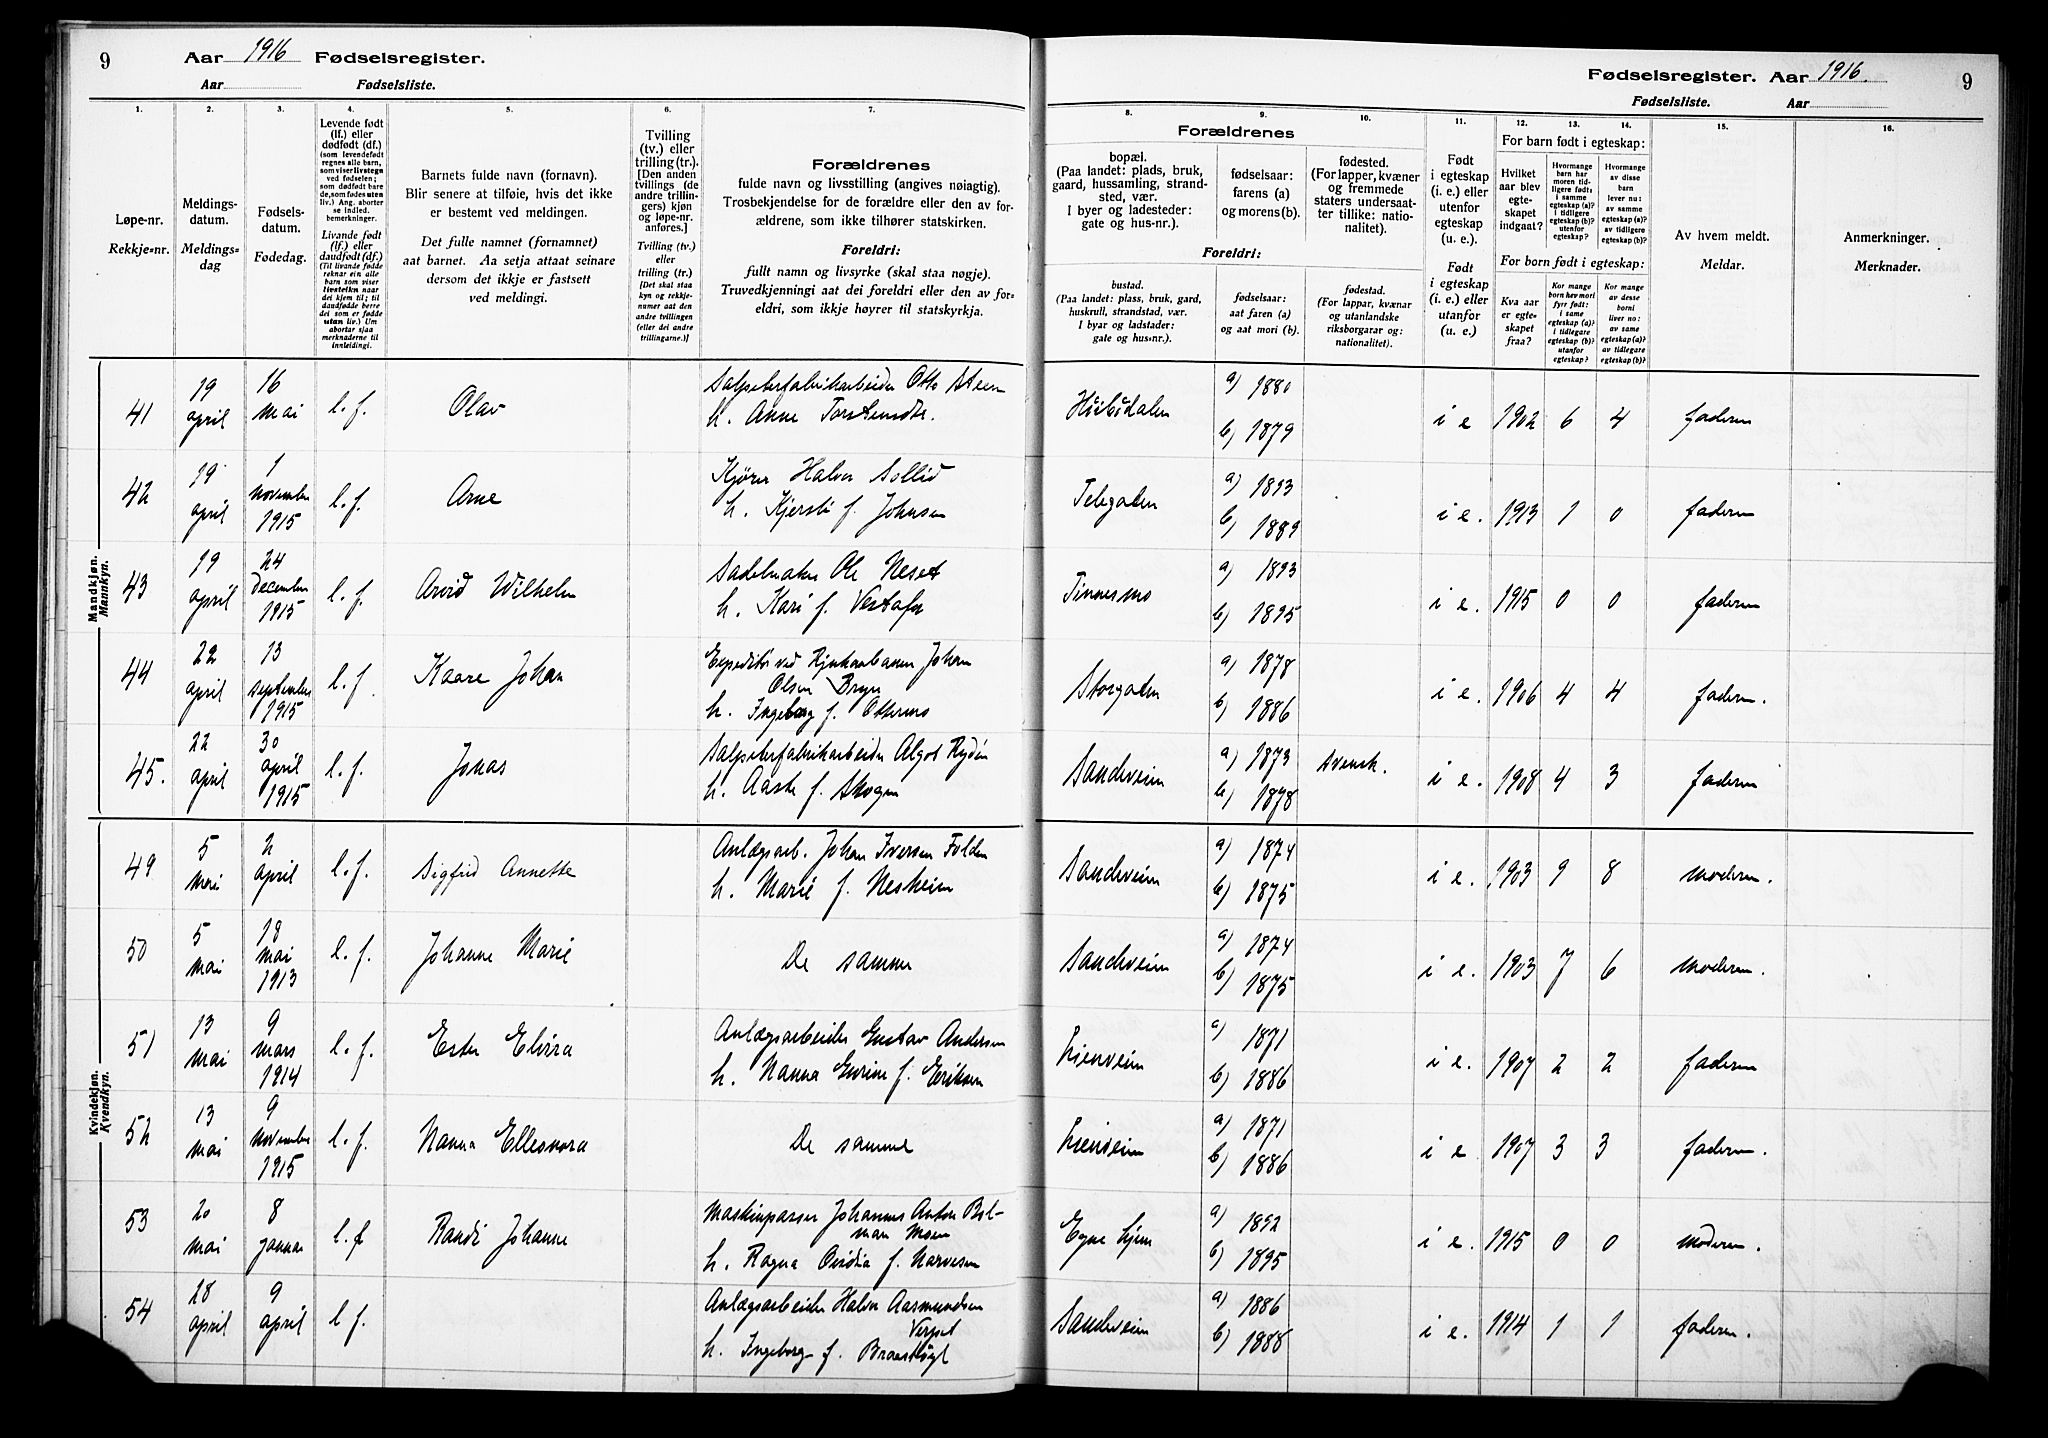 9 Aar 1916 Fødselsregister.
Aar Fødselsliste.
Fødselsregister. Aar 1916. 9
Fødselsliste. Aar
1. 2. 3. 4. 5. 6. 7. 8. 9. 10. 11. 12. 13. 14. 15. 16.
Løpe-nr.
Rekkje=nr.
Meldings-
datum.
Meldings=
dag
Fødsels-
datum.
Fødedag.
Levende født
(lf.) eller
dødfødt (df.)
(som levendefødt
regnes alle barn,
som viser livstegn
ved fødselen;
som dødfødt bare
de, som fødes uten
liv.) Ang. aborter
se indled.
bemerkninger.
Livande født
(lf.) eller
daudfødt (df.)
(Til livande fødde
reknar ein alle
barn som viser
livsteikn naar
dei kjem til; til
daudfødde berre
dei som er fødde
utan liv.) Um
abortar sjaa
merknaderne til
innleidingi.
Barnets fulde navn (fornavn).
Blir senere at tilføie, hvis det ikke
er bestemt ved meldingen.
Det fulle namnet (fornamnet)
aat barnet. Aa setja attaat seinare
dersom det ikkje er fastsett
ved meldingi.
Tvilling
(tv.) eller
trilling (tr.).
[Den anden
tvillings (de
andre trillin-
gers) kjøn
og løpe-nr.
anføres.]
Tvilling (tv.)
eller
trilling (tr.)
[Det skal staa
kyn og rekkje-
numer aat den
andre tvillingen
(eller dei andre
trillingarne.)]
Forældrenes
fulde navn og livsstilling (angives nøiagtig).
Trosbekjendelse for de forældre eller den av for-
ældrene, som ikke tilhører statskirken.
Foreldri:
fullt namn og livsyrke (skal staa nøgje).
Truvedkjenningi aat dei foreldri eller den av fo-
eldri, som ikkje høyrer til statskyrkja.
Forældrenes
bopæl.
(Paa landet: plads, bruk,
gaard, hussamling, strand-
sted, vær.
I byer og ladesteder:
gate og hus-nr.).
fødselsaar:
farens (a)
og morens (b).
fødested.
(For lapper, kvæner
og fremmede
staters undersaat-
ter tillike: natio-
nalitet).
Foreldri:
bustad.
(Paa landet: plass, bruk, gard,
huskrull, strandstad, vær.
I byar og ladstader:
gate og hus=nr.).
fødselsaar:
aat faren (a)
og aat mori (b).
fødestad.
(For lappar, kvænar
og utanlandske
riksborgarar og:
nationalitet).
Født
i egteskap
(i. e.) eller
utenfor
egteskap
(u. e.).
Født
i egteskap
(i. e.) eller
utanfor
(u. e.).
For barn født i egteskap:
Hvilket
aar blev
egte-
skapet
indgaat?
Hvormange
barn har
moren tid-
ligere født:
i samme
egteskap (a)?
i tidligere
egteskap (b)?
utenfor
egteskap?
Hvormange
av disse
barn
lever nu:
av samme
egteskap (a)?
av tidligere
egteskap (b)?
For born født i egteskap:
Kva aar
er egte-
skapet
fraa?
Kor mange
born hev mori
fyrr født:
i same
egteskap (a)?
i tidlegare
egteskap (b)?
utanfor
egteskap?
Kor mange
av desse
borni
liver no:
av same
egteskap (a)?
av tidlegare
egteskap (b)?
Av hvem meldt.
Meldar.
Anmerkninger.
Merknader.
Mandkjøn.
Mannkyn.
41 19 april 16 mai l. f. Olav
Salpeterfabrikarbeider Otto Steen
h. Anne Torstensdtr.
a) 1880
b) 1879
i e 1902 6 4 faderen
42 19 april 1 november 1915 l. f. Arne
Kjører Halvor Sollid
h. Kjersti f. Johnsen
Telegaten
a) 1893
b) 1889
i e. 1913 1 0 faderen
43 19 april 24 december 1915 l. f. Arvid Wilhelm
Sadelmaker Ole Neset
h. Kari f.
Tinnesmo
a) 1893
b) 1895
i e. 1915 0 0 faderen
44 22 april 13 september 1915 l. f. Kaare Johan
Expeditør ved Rjukanbanen Johan
Olsen Bryn
h. Ingeborg f. Ottermo
Storgaten
a) 1878
b) 1886
i e. 1906 4 4 faderen.
45. 22 april 30 april 1915 l. f. Jonas
Salpeterfabrikarbeider Algot Rydén
h. Aaste f. Skogen
Sandveien
a) 1873
b) 1878
svensk.
i e. 1908 4 3 faderen
Kvindekjøn.
Kvendkyn.
49 5 mai 2 april l. f. Sigfrid Annette
Anlægsarb. Johan Iversen Folden
h. Marie f. Nesheim
Sandveien
a) 1874
b) 1875
i e. 1903 9 8 moderen.
50 5 mai 18 mai 1913 l. f. Johanne Marie
De samme
Sandveien
a) 1874
b) 1875
i e. 1903 7 6 moderen.
51 13 mai 9 mars 1914 l. f. Ester Elvira
Anlægsarbeider Gustav Andersen
h. Nanna Gurine f. Eriksen
Lienveien
a) 1871
b) 1886
i e. 1907 2 2 faderen
52 13 mai 9 november 1915 l. f. Nanna Ellenora
De samme
Lienveien
a) 1871
b) 1886
i e 1907 3 3 faderen.
53 20 mai 8 januar l. f Randi Johanne
Maskinpasser Johannes Anton Bol-
man Moen
h. Ragna Ovidia f. Narvesen
Egne hjem
a) 1892
b) 1895
i e. 1915 0 0 moderen.
54 28 april 9 april l f.
Anlægsarbeider Halvor Aasmundsen
h. Ingeborg f.
Sandveien
a) 1886
b) 1888
i e. 1914 1 1 faderen.